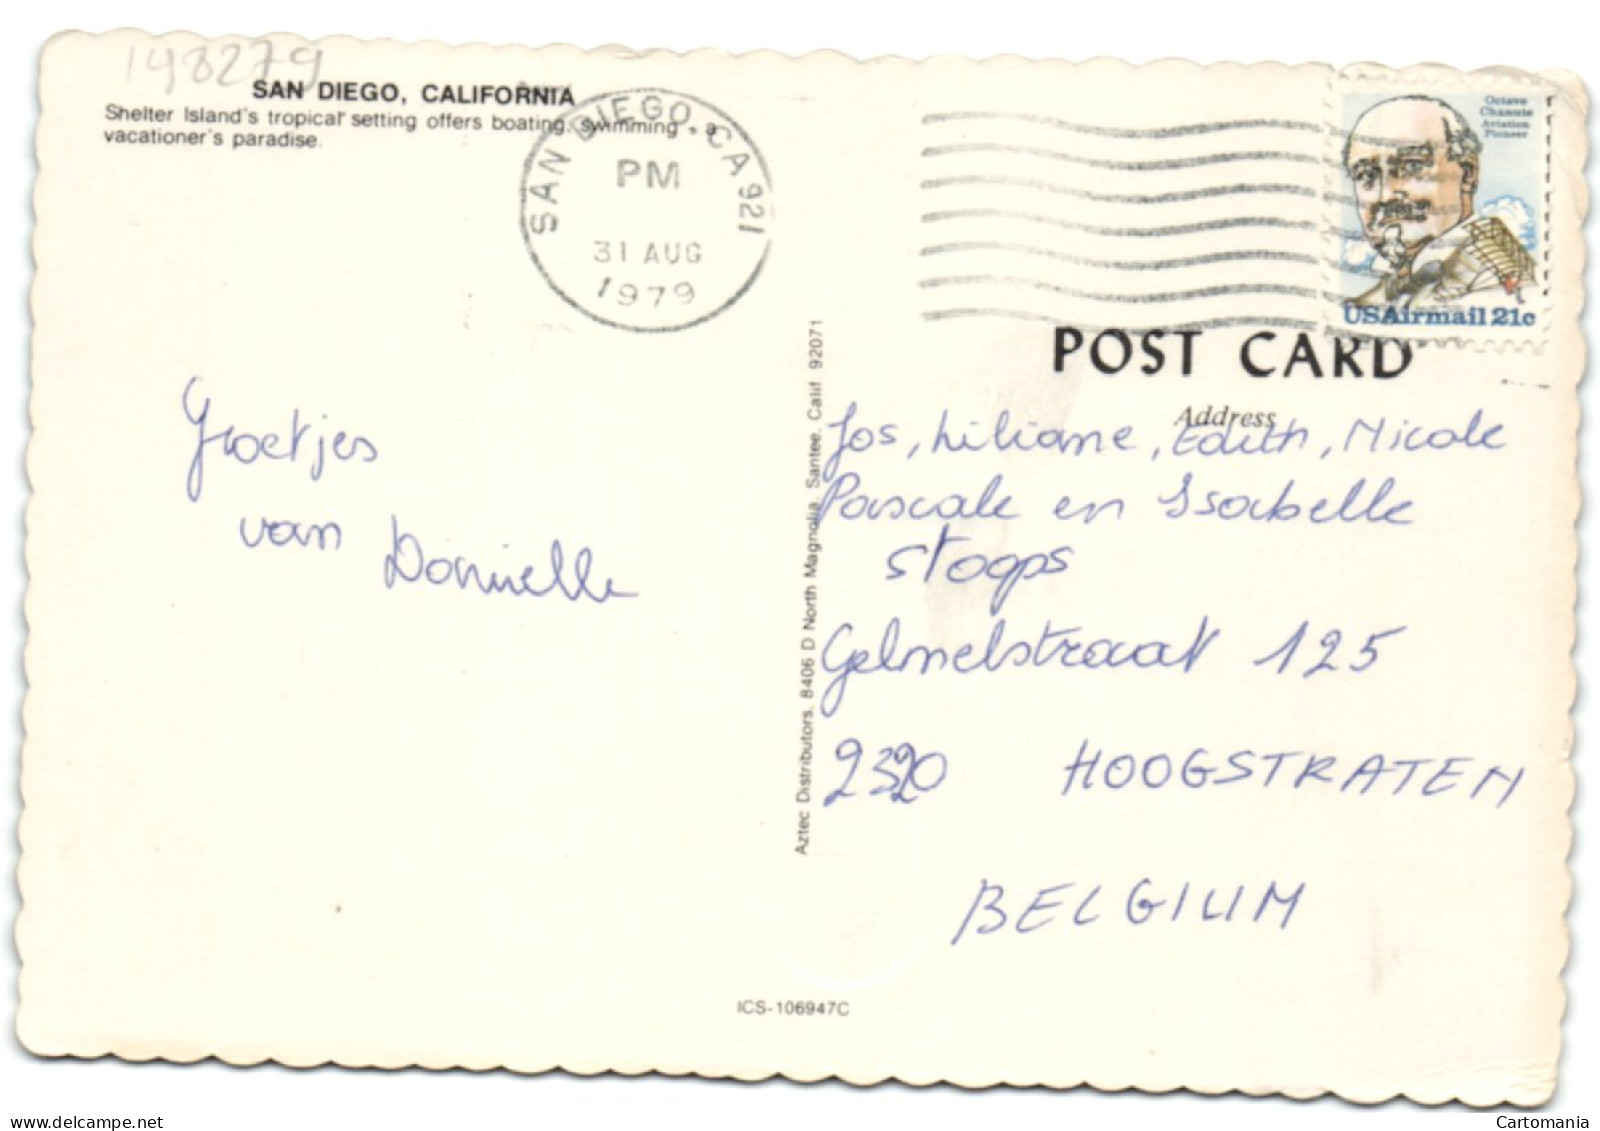 148279
SAN DIEGO, CALIFORNIA
Shelter Island's tropical setting offers boating, swimming, a
vacationer's paradise.
SAN DIEGO, CA 921
PM
31 AUG
1979
Octave
Chanute
Aviation
Pioneer
USAirmail 21c
POST CARD
Address
Groetjes
van Danielle
Jos, Liliane, Edith, Nicole
Pascale en Isabelle
Stoops
Gelmelstraat 125
2320 HOOGSTRATEN
BELGIUM
Aztec Distributors, 8406 D North Magnolia, Santee, Calif. 92071
ICS-106947C
delcampe.net
Cartomania